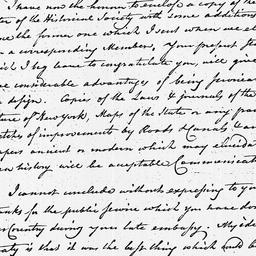 I have now the honor to enclose a copy of the
ter of the Historical Society with some additions
the former one which I sent when we el
a corresponding Member, Your present
ich I beg leave to congratulate you, will give
considerable advantages of being servicea
design. Copies of the Laws & journals of the
ture of New-york, Maps of the State or any par
etches of improvements by Roads & Canals
apers ancient or modern which may elucidat
history will be acceptable Communicati
I cannot conclude without expressing to you
anks for the public Service which you have don
Country during your late embassy. My ide
eaty is that it was the best thing which could be